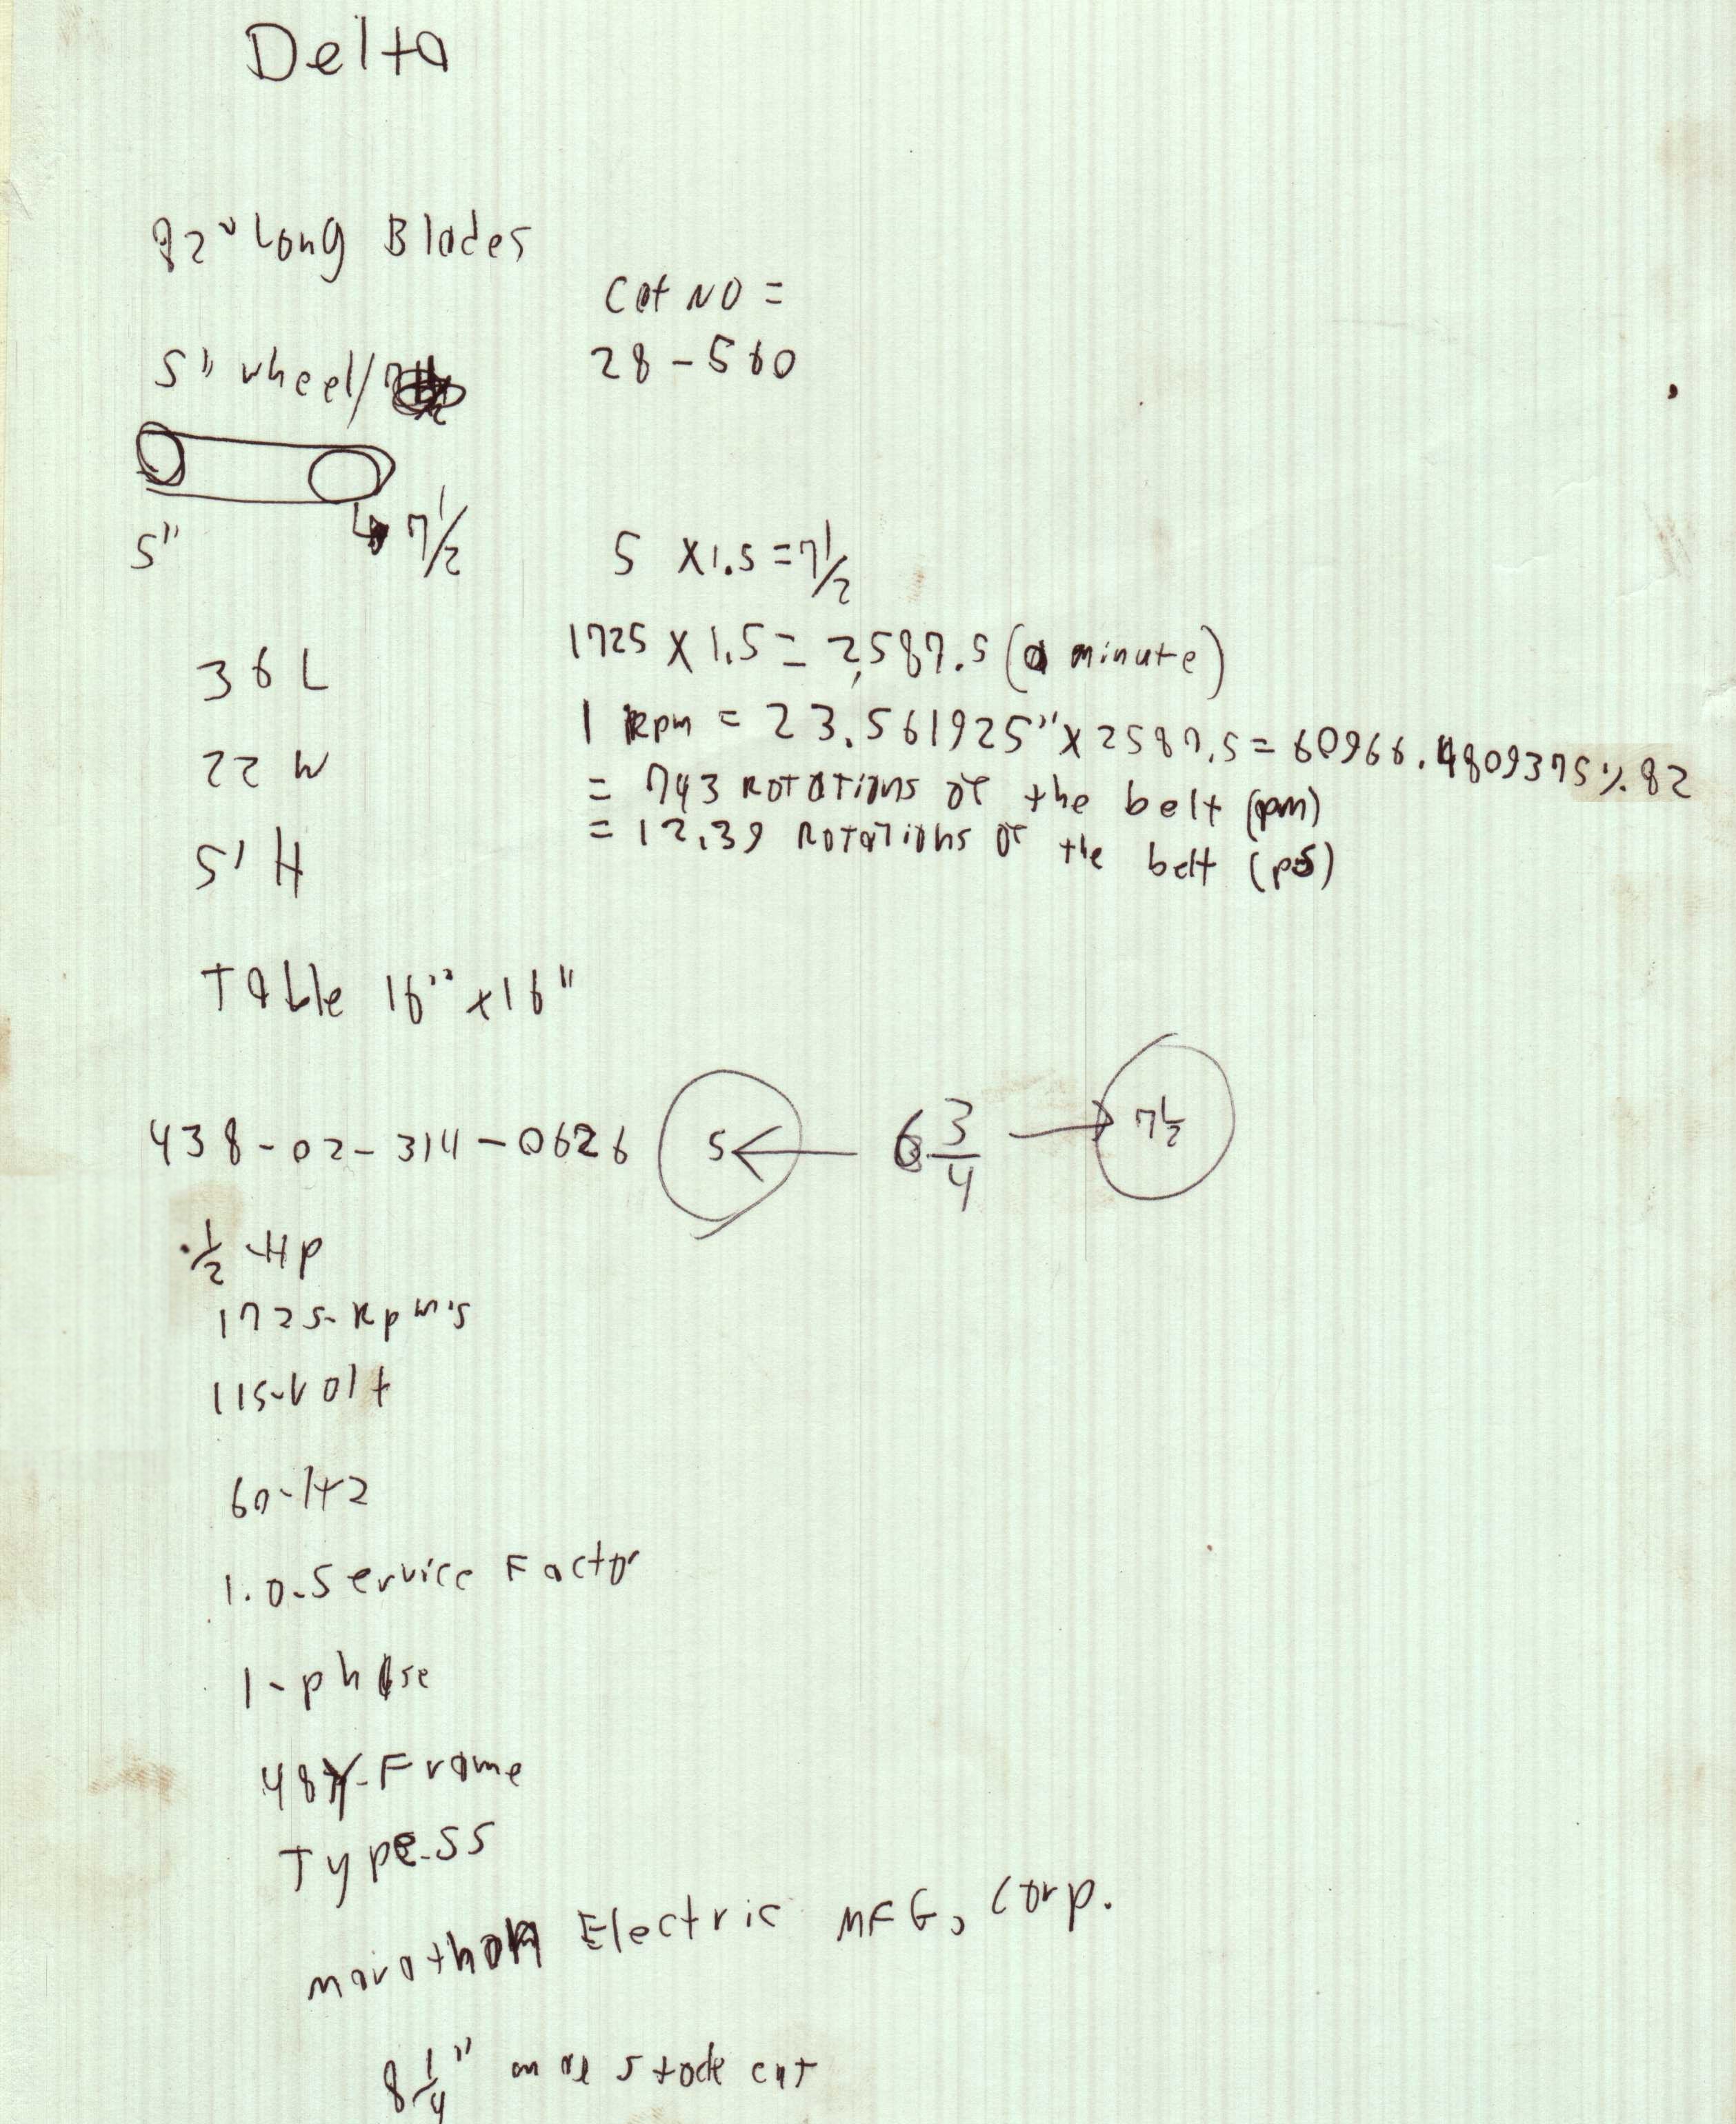 Delta
82" Long Blades
Cat NO =
28-560
5" wheel/
5"
7 1/2
5 X1.5 = 7 1/2
1725 X 1.5 = 2,587.5 (a minute)
1 Rpm = 23.561925" x 2587.5 = 60966.4809375 % 82
= 743 Rotations of the belt (pm)
= 12.39 Rotations of the belt (ps)
36 L
22 W
5' H
Table 16" x 16"
438-02-314-0626
5 ← 6 3/4 → 7 1/2
1/2 - Hp
1725-Rpm's
115-Volt
60-Hz
1.0-Service Factor
1-phase
48Y-Frame
Type-SS
marathon Electric MFG, Corp.
8 1/4" stock cut